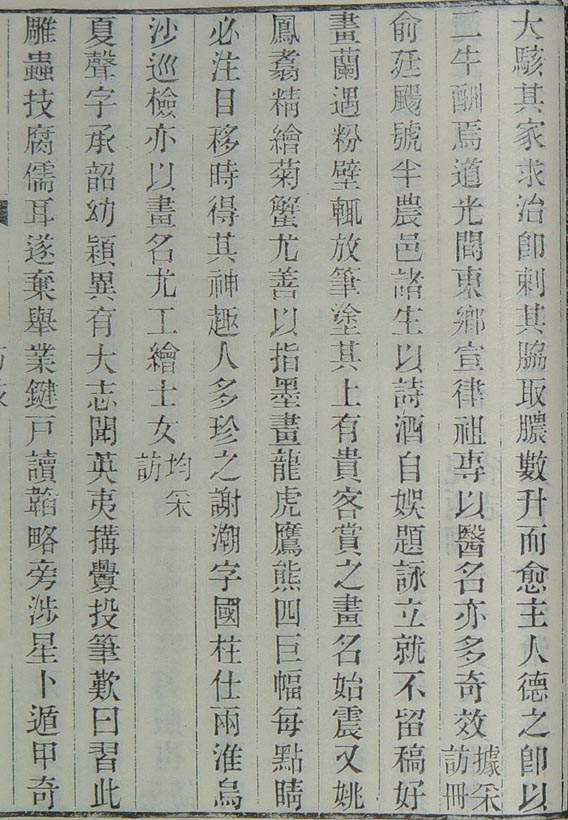 大駭其家求治卽刺其脇取膿數升而愈主人德之卽以
二牛酬焉道光間東鄉宣律祖專以醫名亦多奇效據采訪冊
俞廷颺號半農邑諸生以詩酒自娛題詠立就不留稿好
畫蘭遇粉壁輒放筆塗其上有貴客賞之畫名始震又姚
鳳翥精繪菊蟹尤善以指墨畫龍虎鷹熊四巨幅每點睛
必注目移時得其神趣人多珍之謝潮字國柱仕兩淮烏
沙巡檢亦以畫名尤工繪士女均采訪
夏聲字承韶幼穎異有大志聞英夷搆釁投筆歎曰習此
雕蟲技腐儒耳遂棄舉業鍵戸讀韜略旁涉星卜遁甲奇